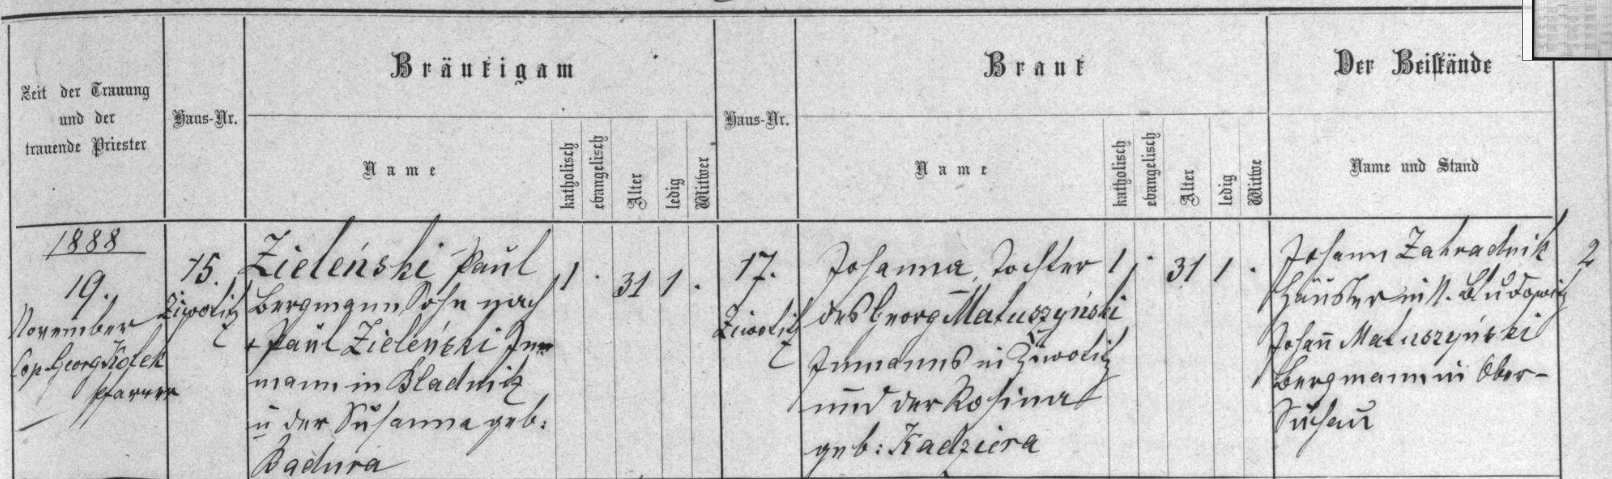 Bräutigam
Braut
Der Beistände
Zeit der Trauung
und der
trauende Priester
Haus-Nr.
Name
katholisch
evangelisch
Alter
ledig
Witwer
Haus-Nr.
Name
katholisch
evangelisch
Alter
ledig
Witwe
Name und Stand
1888
19.
November
Cop. Georg Kolek
Pfarrer
75.
Ziwotitz
Zieleński Paul
Bergmann, Sohn nach
+ Paul Zieleński In-
mann in Bladnitz
u der Susanna geb:
Badura
1 . 31 1 .
17.
Ziwotitz
Johanna, Tochter
des Georg Matuszyński
Inmanns in Ziwotitz
und der Rosina
geb: Kadziera
1 . 31 1 .
Johann Zahradnik
Häusler in N. Bludowitz
Johann Matuszyński
Bergmann in Ober-
Suchau
2